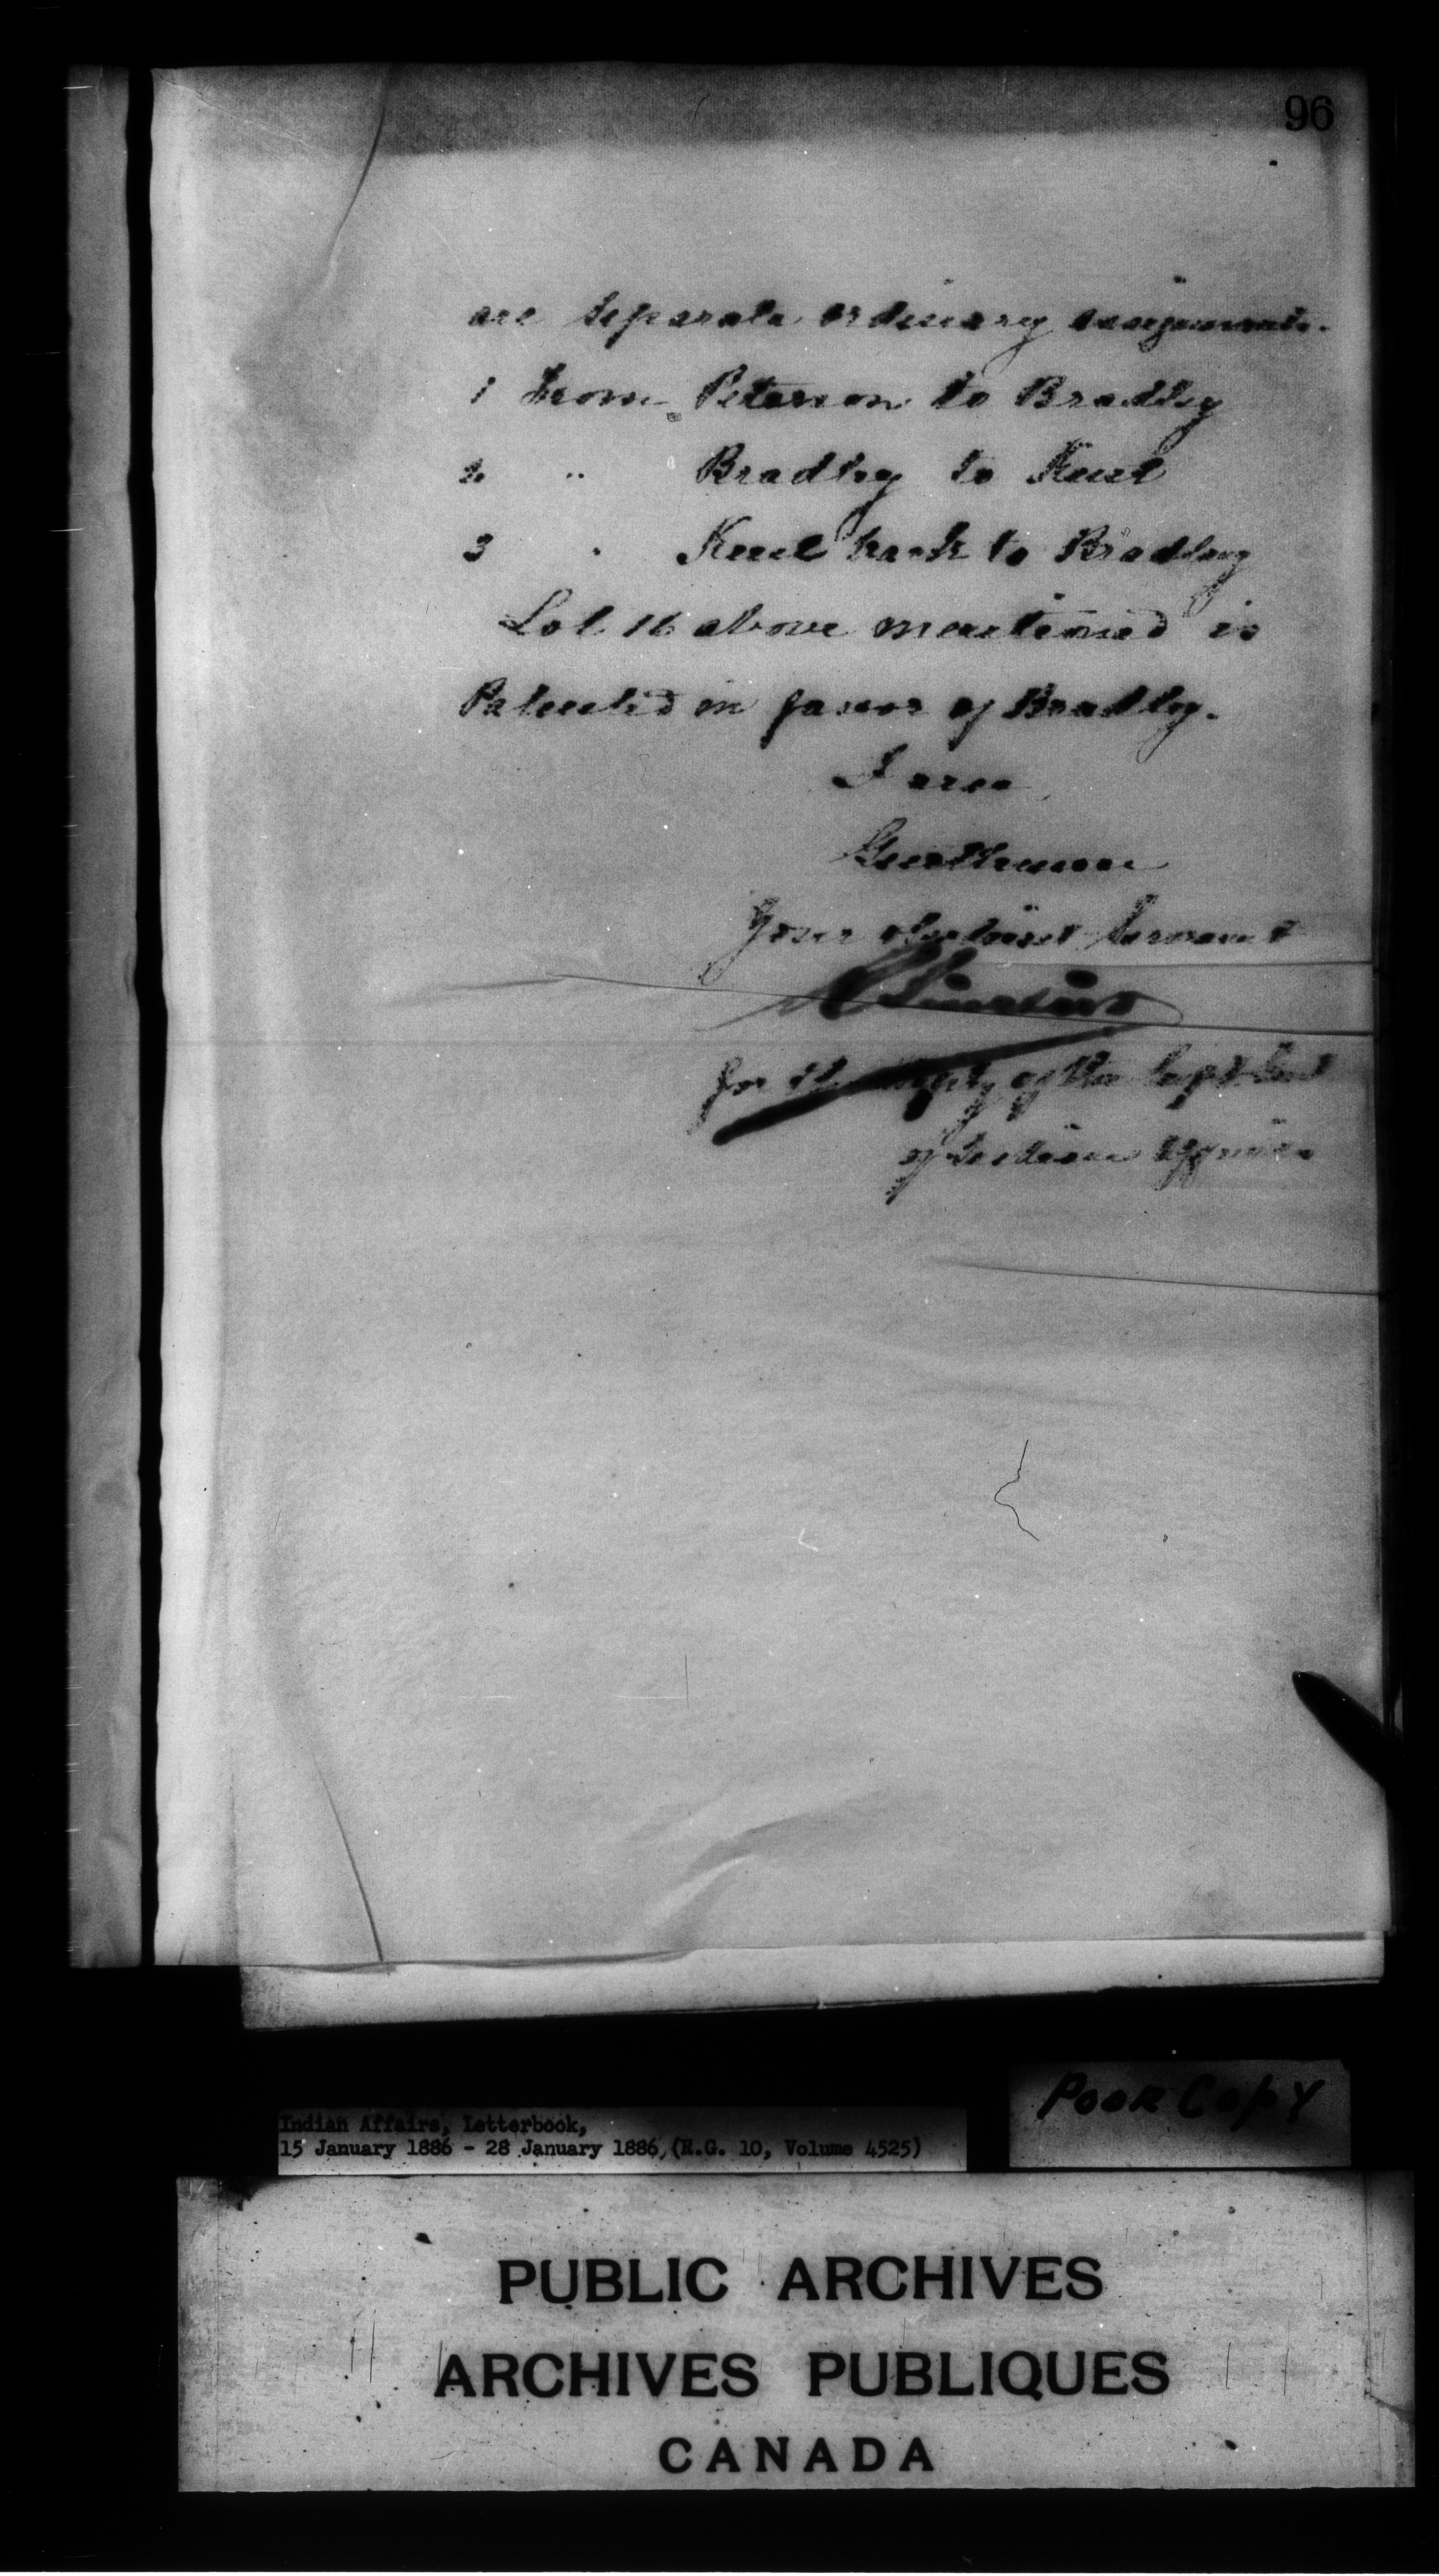 96
are separate ordinary assignments.
1 from Peterson to Bradley
2 " Bradley to Keul
3 " Keul back to Bradley
Lot 16 above mentioned is
Patented in favor of Bradley.
I am
Gentlemen
Your obedient Servant
for the Deputy of the Supt Genl
of Indian Affairs
Poor Copy
Indian Affairs, Letterbook,
15 January 1886 - 28 January 1886, (R.G. 10, Volume 4525)
PUBLIC ARCHIVES
ARCHIVES PUBLIQUES
CANADA